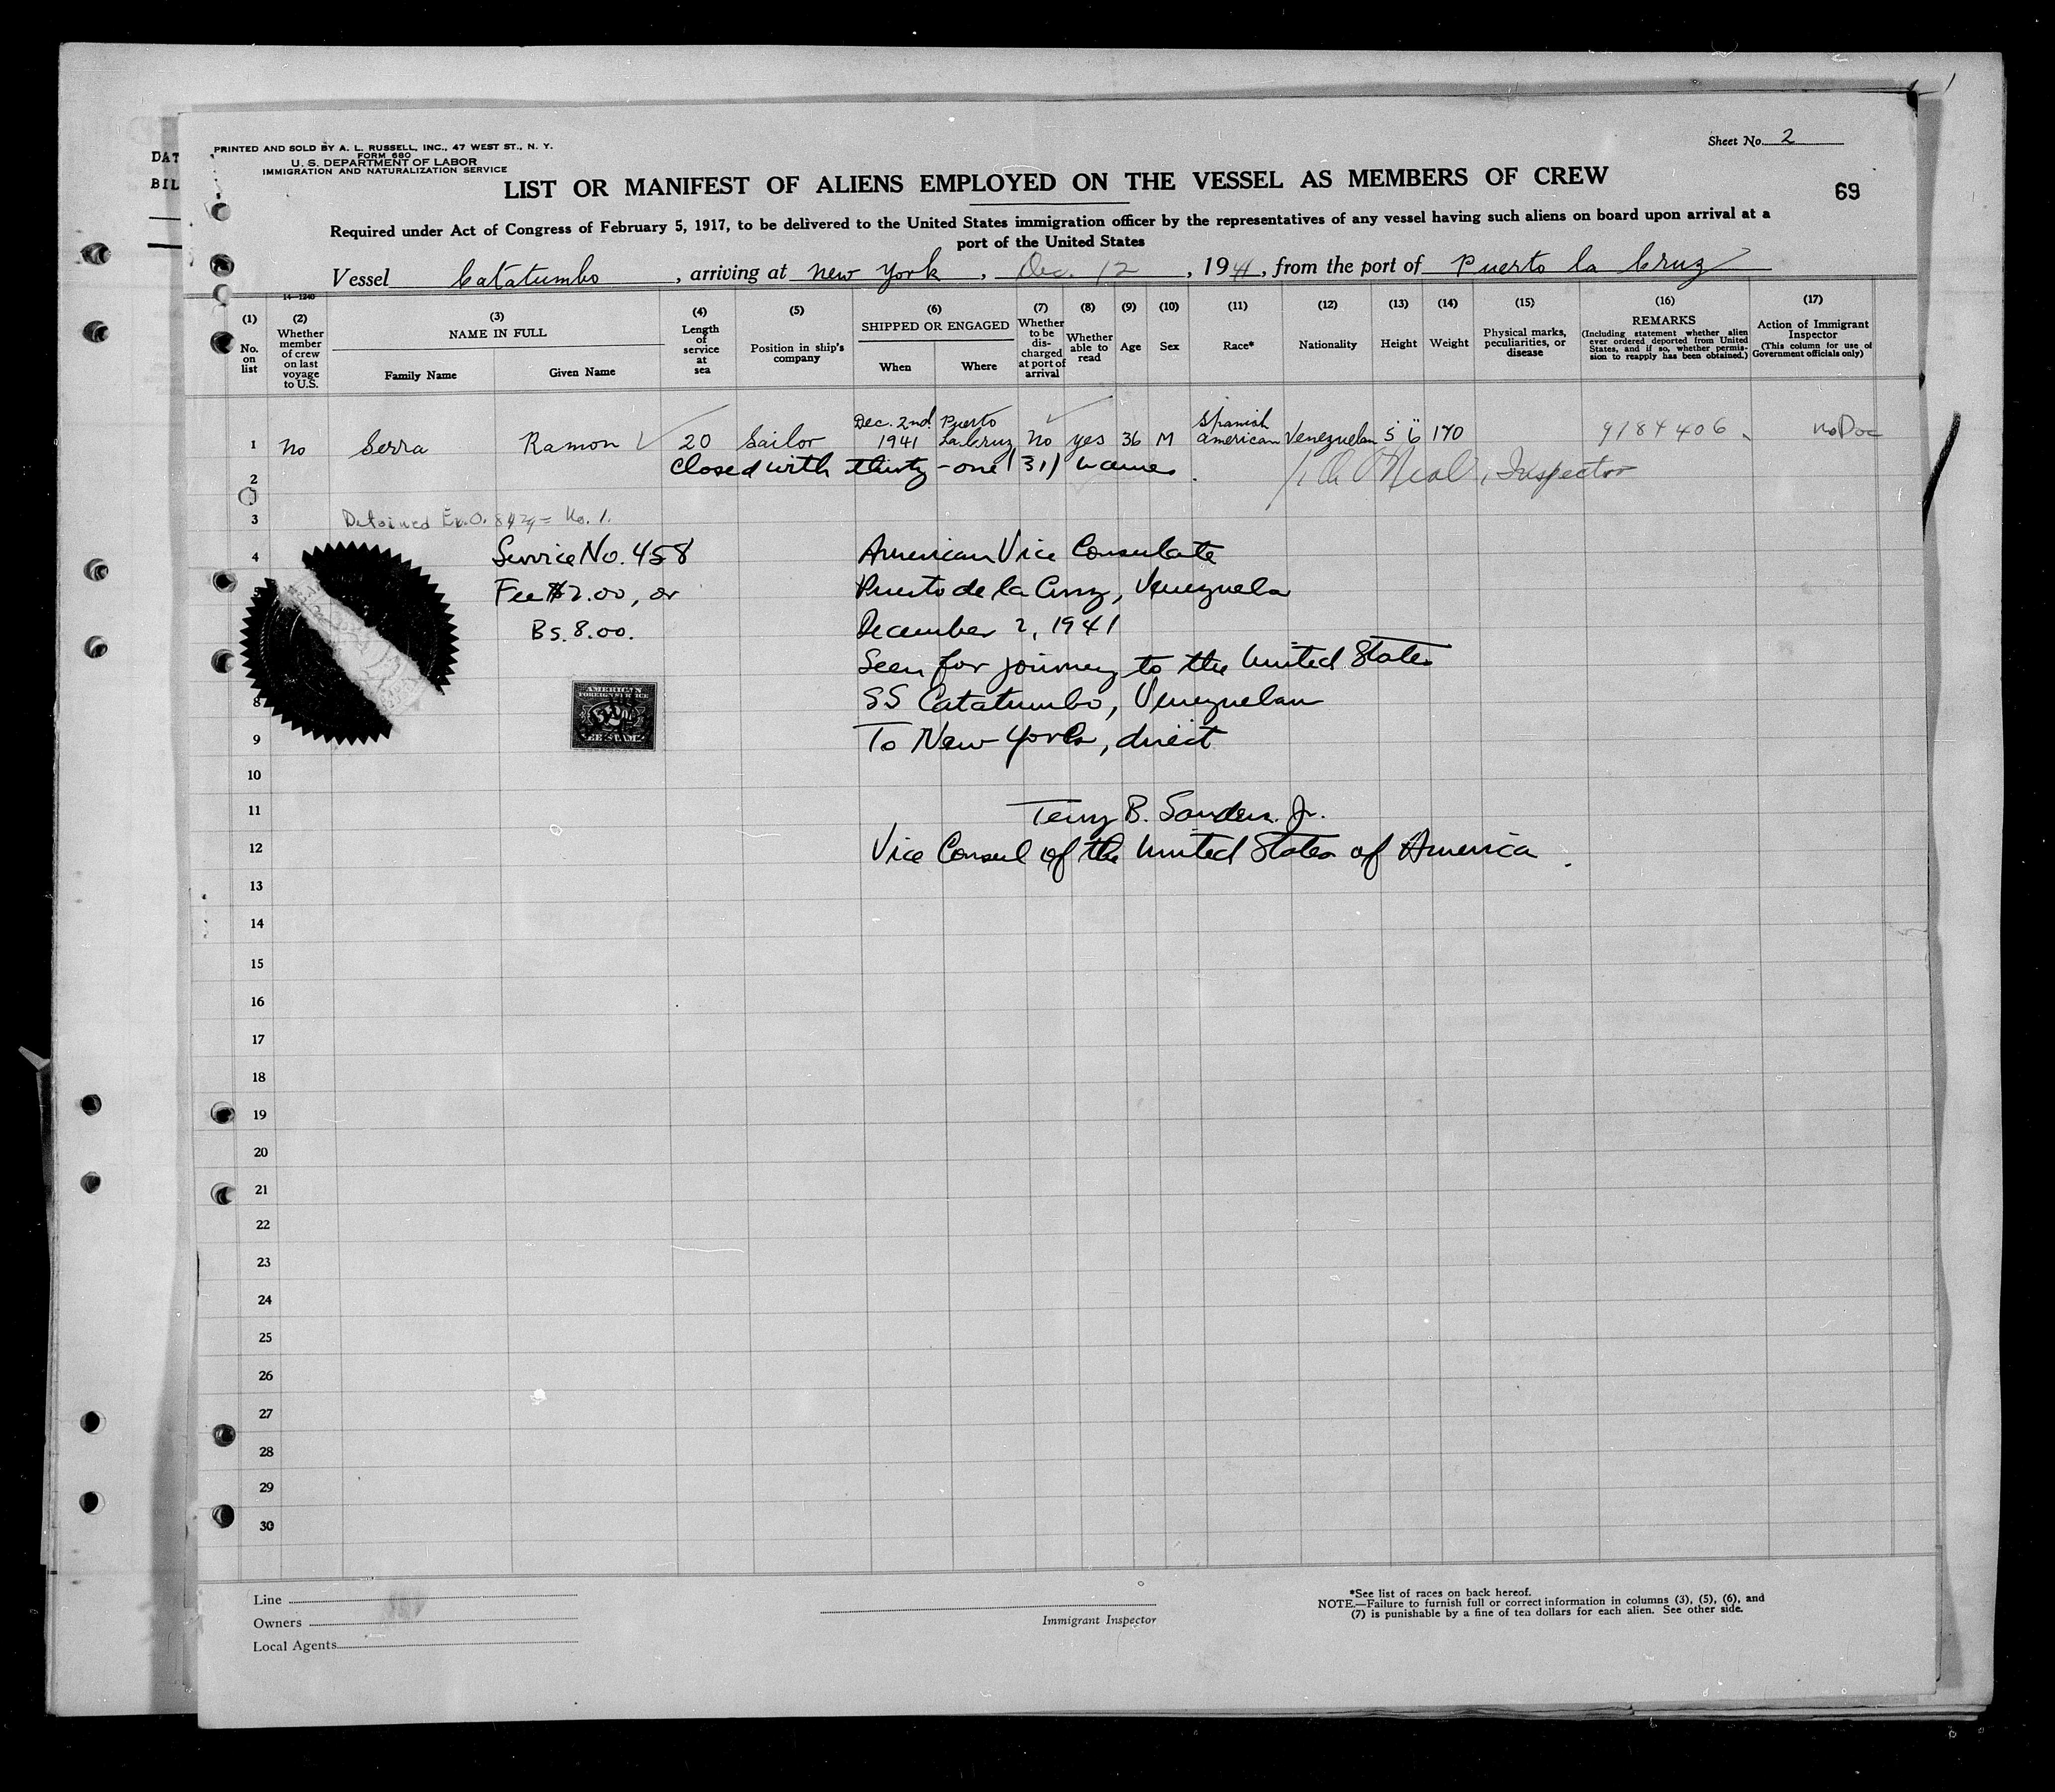 PRINTED AND SOLD BY A. L. RUSSELL, INC., 47 WEST ST., N. Y.
FORM 680
U. S. DEPARTMENT OF LABOR
IMMIGRATION AND NATURALIZATION SERVICE
Sheet No. 2
DAT
BIL
LIST OR MANIFEST OF ALIENS EMPLOYED ON THE VESSEL AS MEMBERS OF CREW
69
Required under Act of Congress of February 5, 1917, to be delivered to the United States immigration officer by the representatives of any vessel having such aliens on board upon arrival at a
port of the United States
Vessel Catatumbo, arriving at New York, Dec. 12, 1941, from the port of Puerto la Cruz
14-1240
(1) No. on list
(2) Whether member of crew on last voyage to U.S.
(3) NAME IN FULL
Family Name
Given Name
(4) Length of service at sea
(5) Position in ship's company
(6) SHIPPED OR ENGAGED
When
Where
(7) Whether to be discharged at port of arrival
(8) Whether able to read
(9) Age
(10) Sex
(11) Race*
(12) Nationality
(13) Height
(14) Weight
(15) Physical marks, peculiarities, or disease
(16) REMARKS (Including statement whether alien ever ordered deported from United States, and if so, whether permission to reapply has been obtained.)
(17) Action of Immigrant Inspector (This column for use of Government officials only)
1 No Serra Ramon 20 Sailor Dec. 2nd. 1941 Puerto La Cruz No yes 36 M Spanish american Venezuelan 5' 6" 170 9184406 No Doc
Closed with thirty-one (31) names.
2 O'Neal, Inspector
3 Detained Ex.O. No. 1.
4 Service No. 458 American Vice Consulate
5 Fee $2.00, or Puerto de la Cruz, Venezuela
Bs. 8.00. December 2, 1941
Seen for journey to the United States
8 SS Catatumbo, Venezuelan
AMERICAN
FOREIGN SERVICE
FEE STAMP
9 To New York, direct
10
11 Terry B. Sanders. Jr.
12 Vice Consul of the United States of America.
13
14
15
16
17
18
19
20
21
22
23
24
25
26
27
28
29
30
Line
Owners
Local Agents
Immigrant Inspector
*See list of races on back hereof.
NOTE.—Failure to furnish full or correct information in columns (3), (5), (6), and
(7) is punishable by a fine of ten dollars for each alien. See other side.